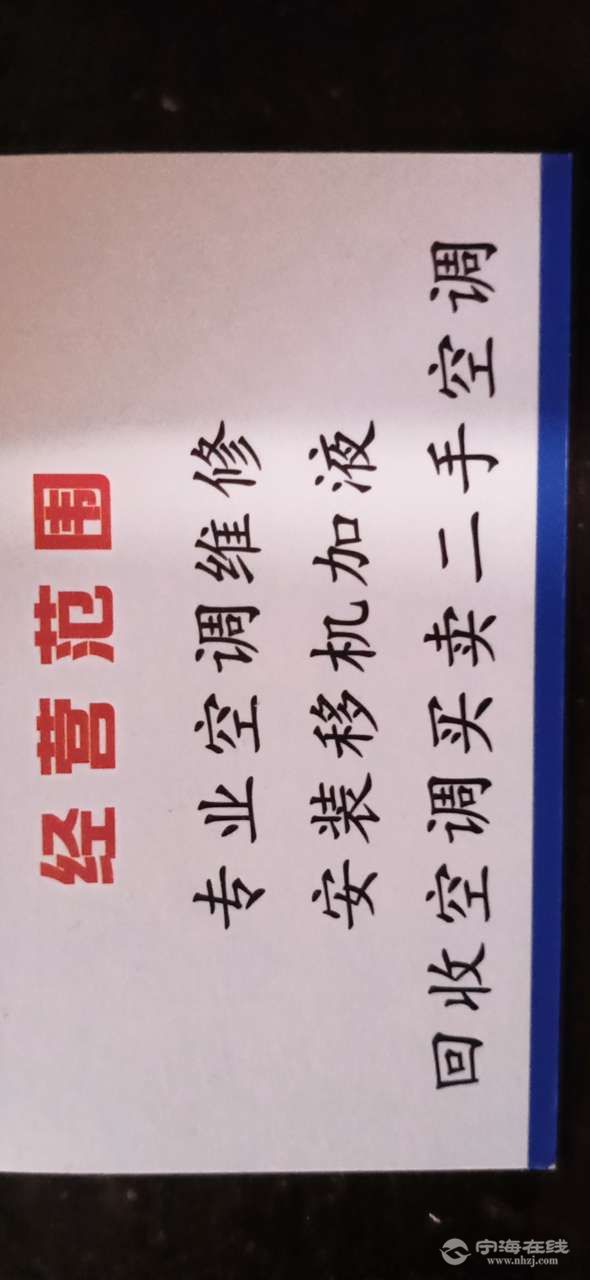 经营范围
专业空调维修
安装移机加液
回收空调买卖二手空调
宁海在线
www.nhzj.com